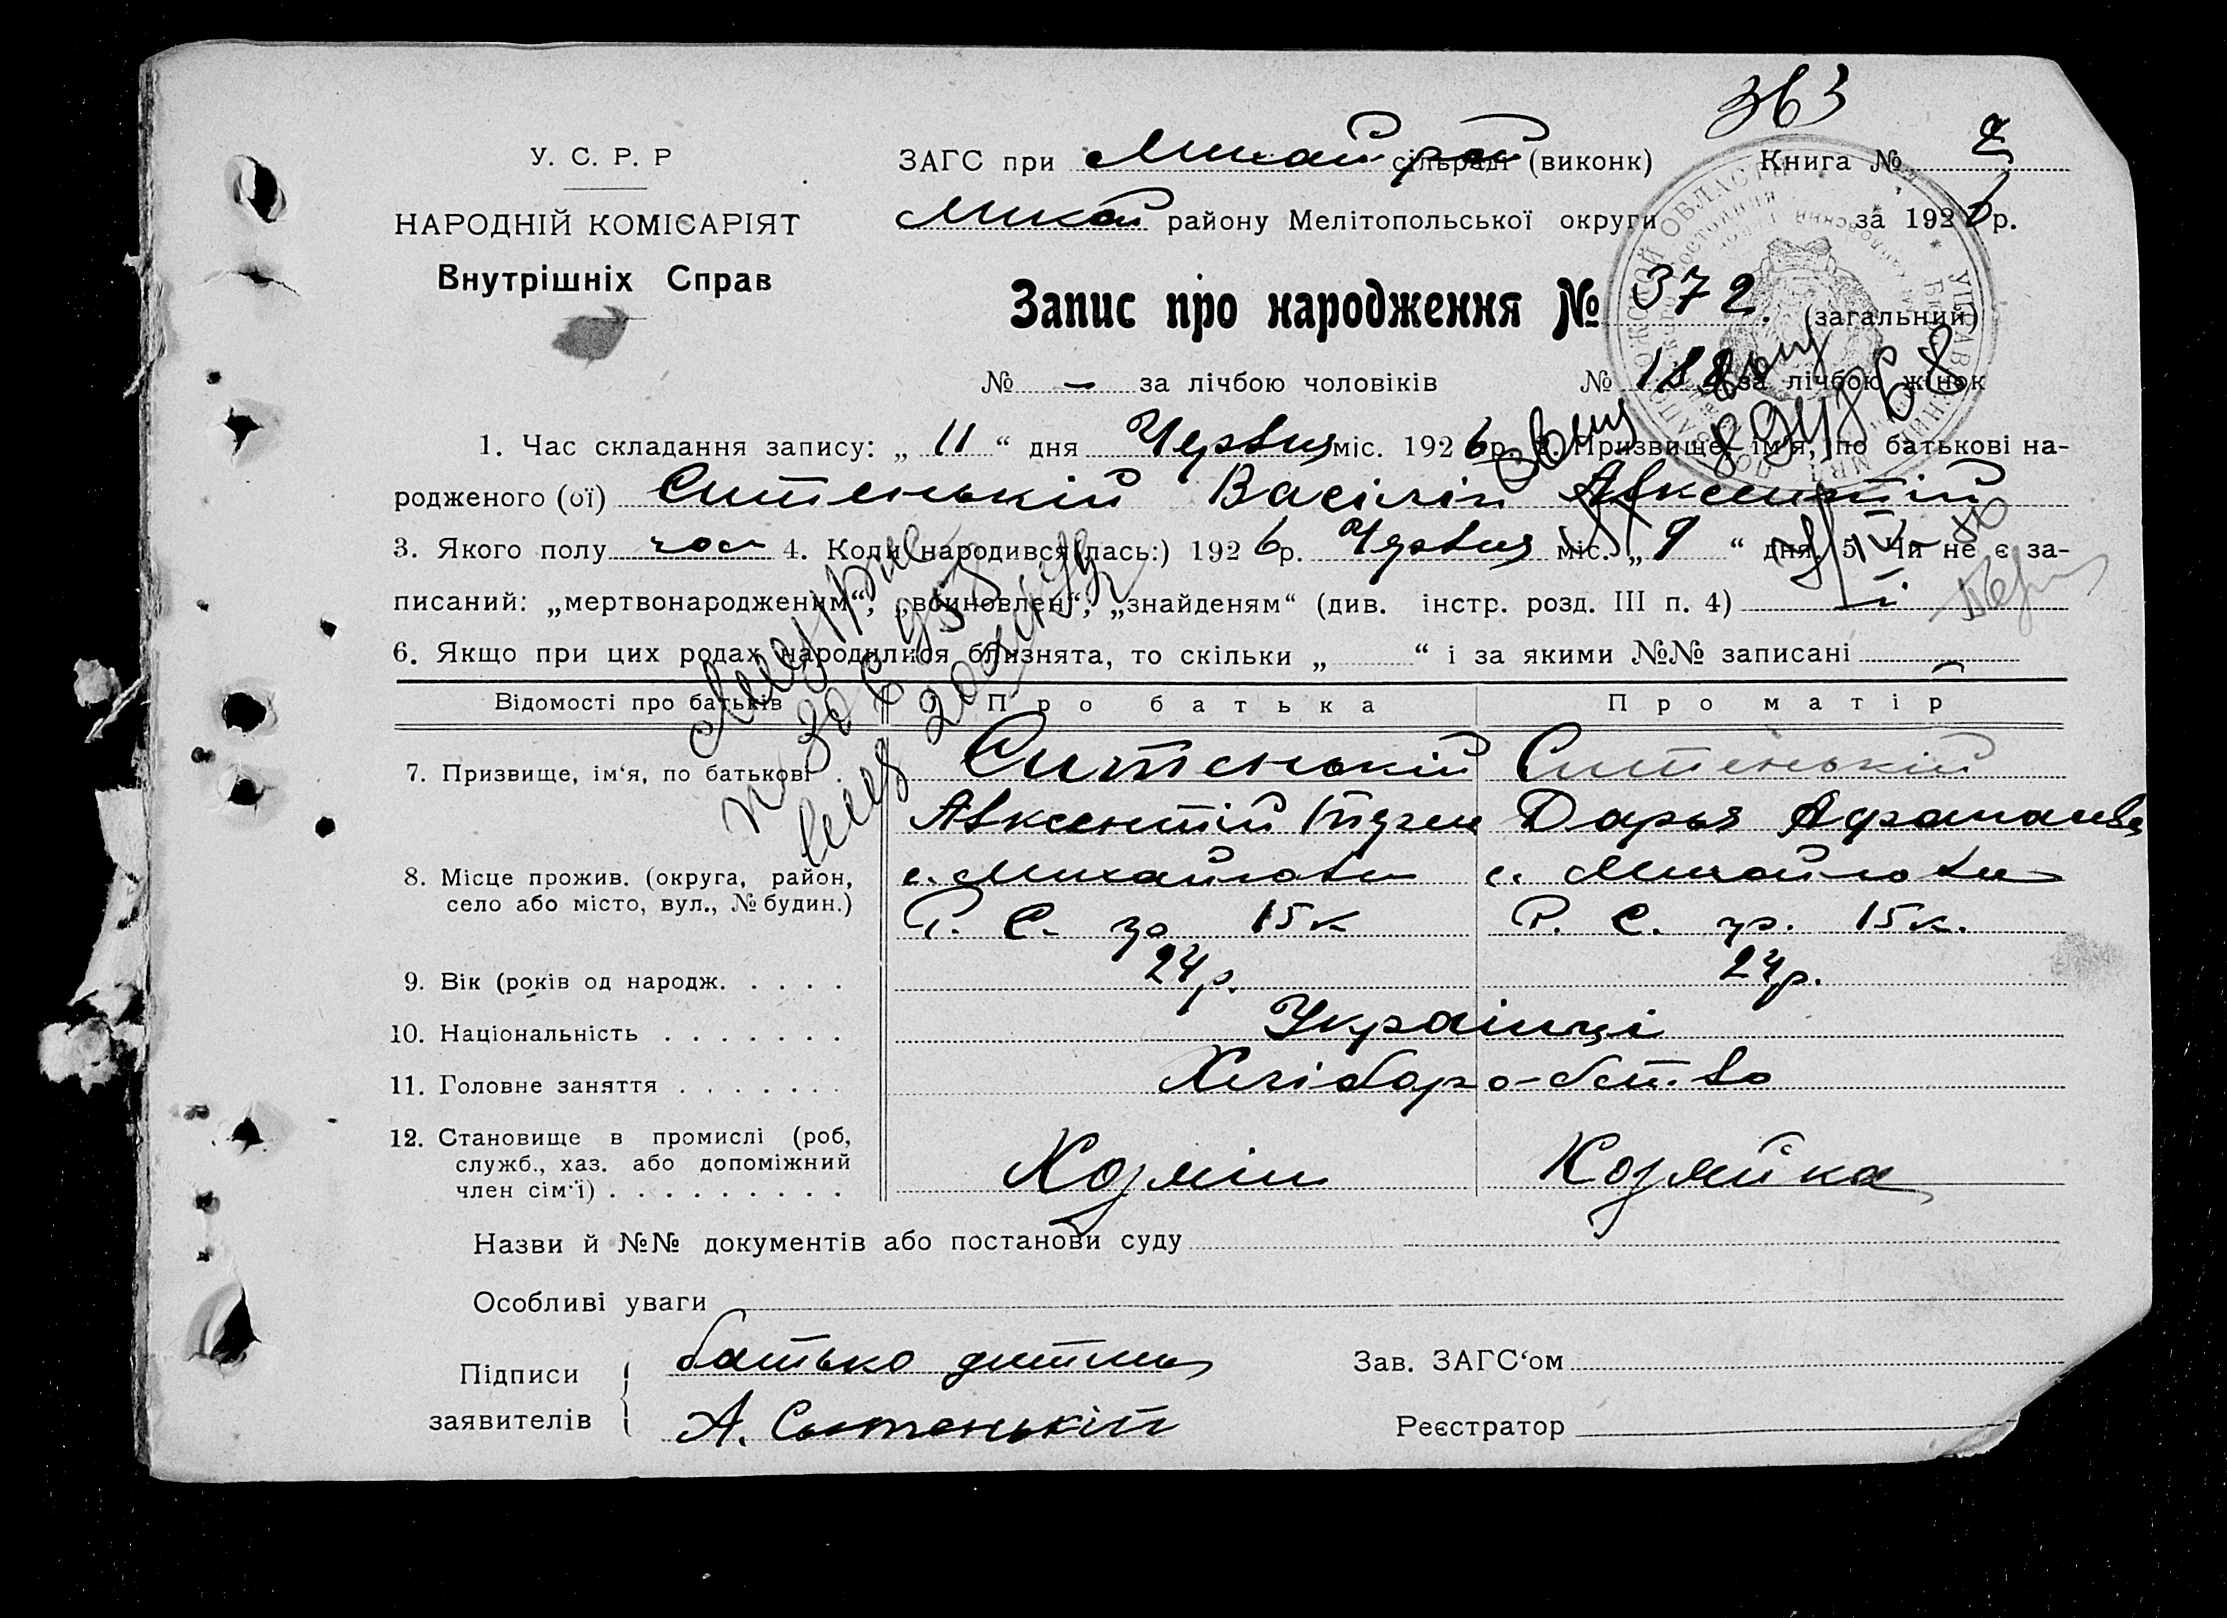 363
У. С. Р. Р
НАРОДНІЙ КОМІСАРІЯТ
Внутрішніх Справ
ЗАГС при Михай рай сільраді (виконк) Книга №
Михай району Мелітопольської округи за 1926 р.
Запис про народження № 372. (загальний)
№ — за лічбою чоловіків № 188 за лічбою жінок
1. Час складання запису: „ 11 “ дня Червня міс. 1926 р. 2. Призвище, ім'я, по батькові на-
родженого (ої) Ситенькій Васілій Авксентій
3. Якого полу чол 4. Коли народився(лась:) 1926 р. Червня міс. „ 9 “ дня. 5. Чи не є за-
писаний: „мертвонародженим“, „вбиновлен“, „знайденям“ (див. інстр. розд. III п. 4)
6. Якщо при цих родах народилися близнята, то скільки „ “ і за якими №№ записані
Відомості про батьків Про батька Про матір
7. Призвище, ім‘я, по батькові Ситенькій Ситенькій
Авксентій Дарья
8. Місце прожив. (округа, район, с. Михайловка с. Михайловка
село або місто, вул., № будин.) Р. С. 15к Р. С. 15к.
9. Вік (років од народж. . . . . 24р. 24р.
10. Національність . . . . . . . Українці
11. Головне заняття . . . . . . . Хліборо-бство
12. Становище в промислі (роб,
служб., хаз. або допоміжний Хозяін Хозяйка
член сім‘ї) . . . . . . . . .
Назви й №№ документів або постанови суду
Особливі уваги
Підписи батько дитини Зав. ЗАГС‘ом
заявителів А. Сытенькій Реєстратор